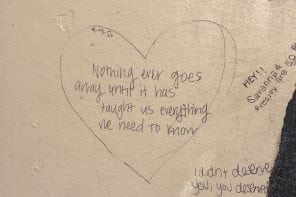 Nothing ever goes
away until it has
taught us everything
we need to know
HEY!!
Savanna &
Presley are so
I didnt deserve
you, you